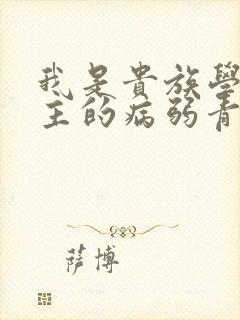 我是貴族學
主的病弱青
薩博